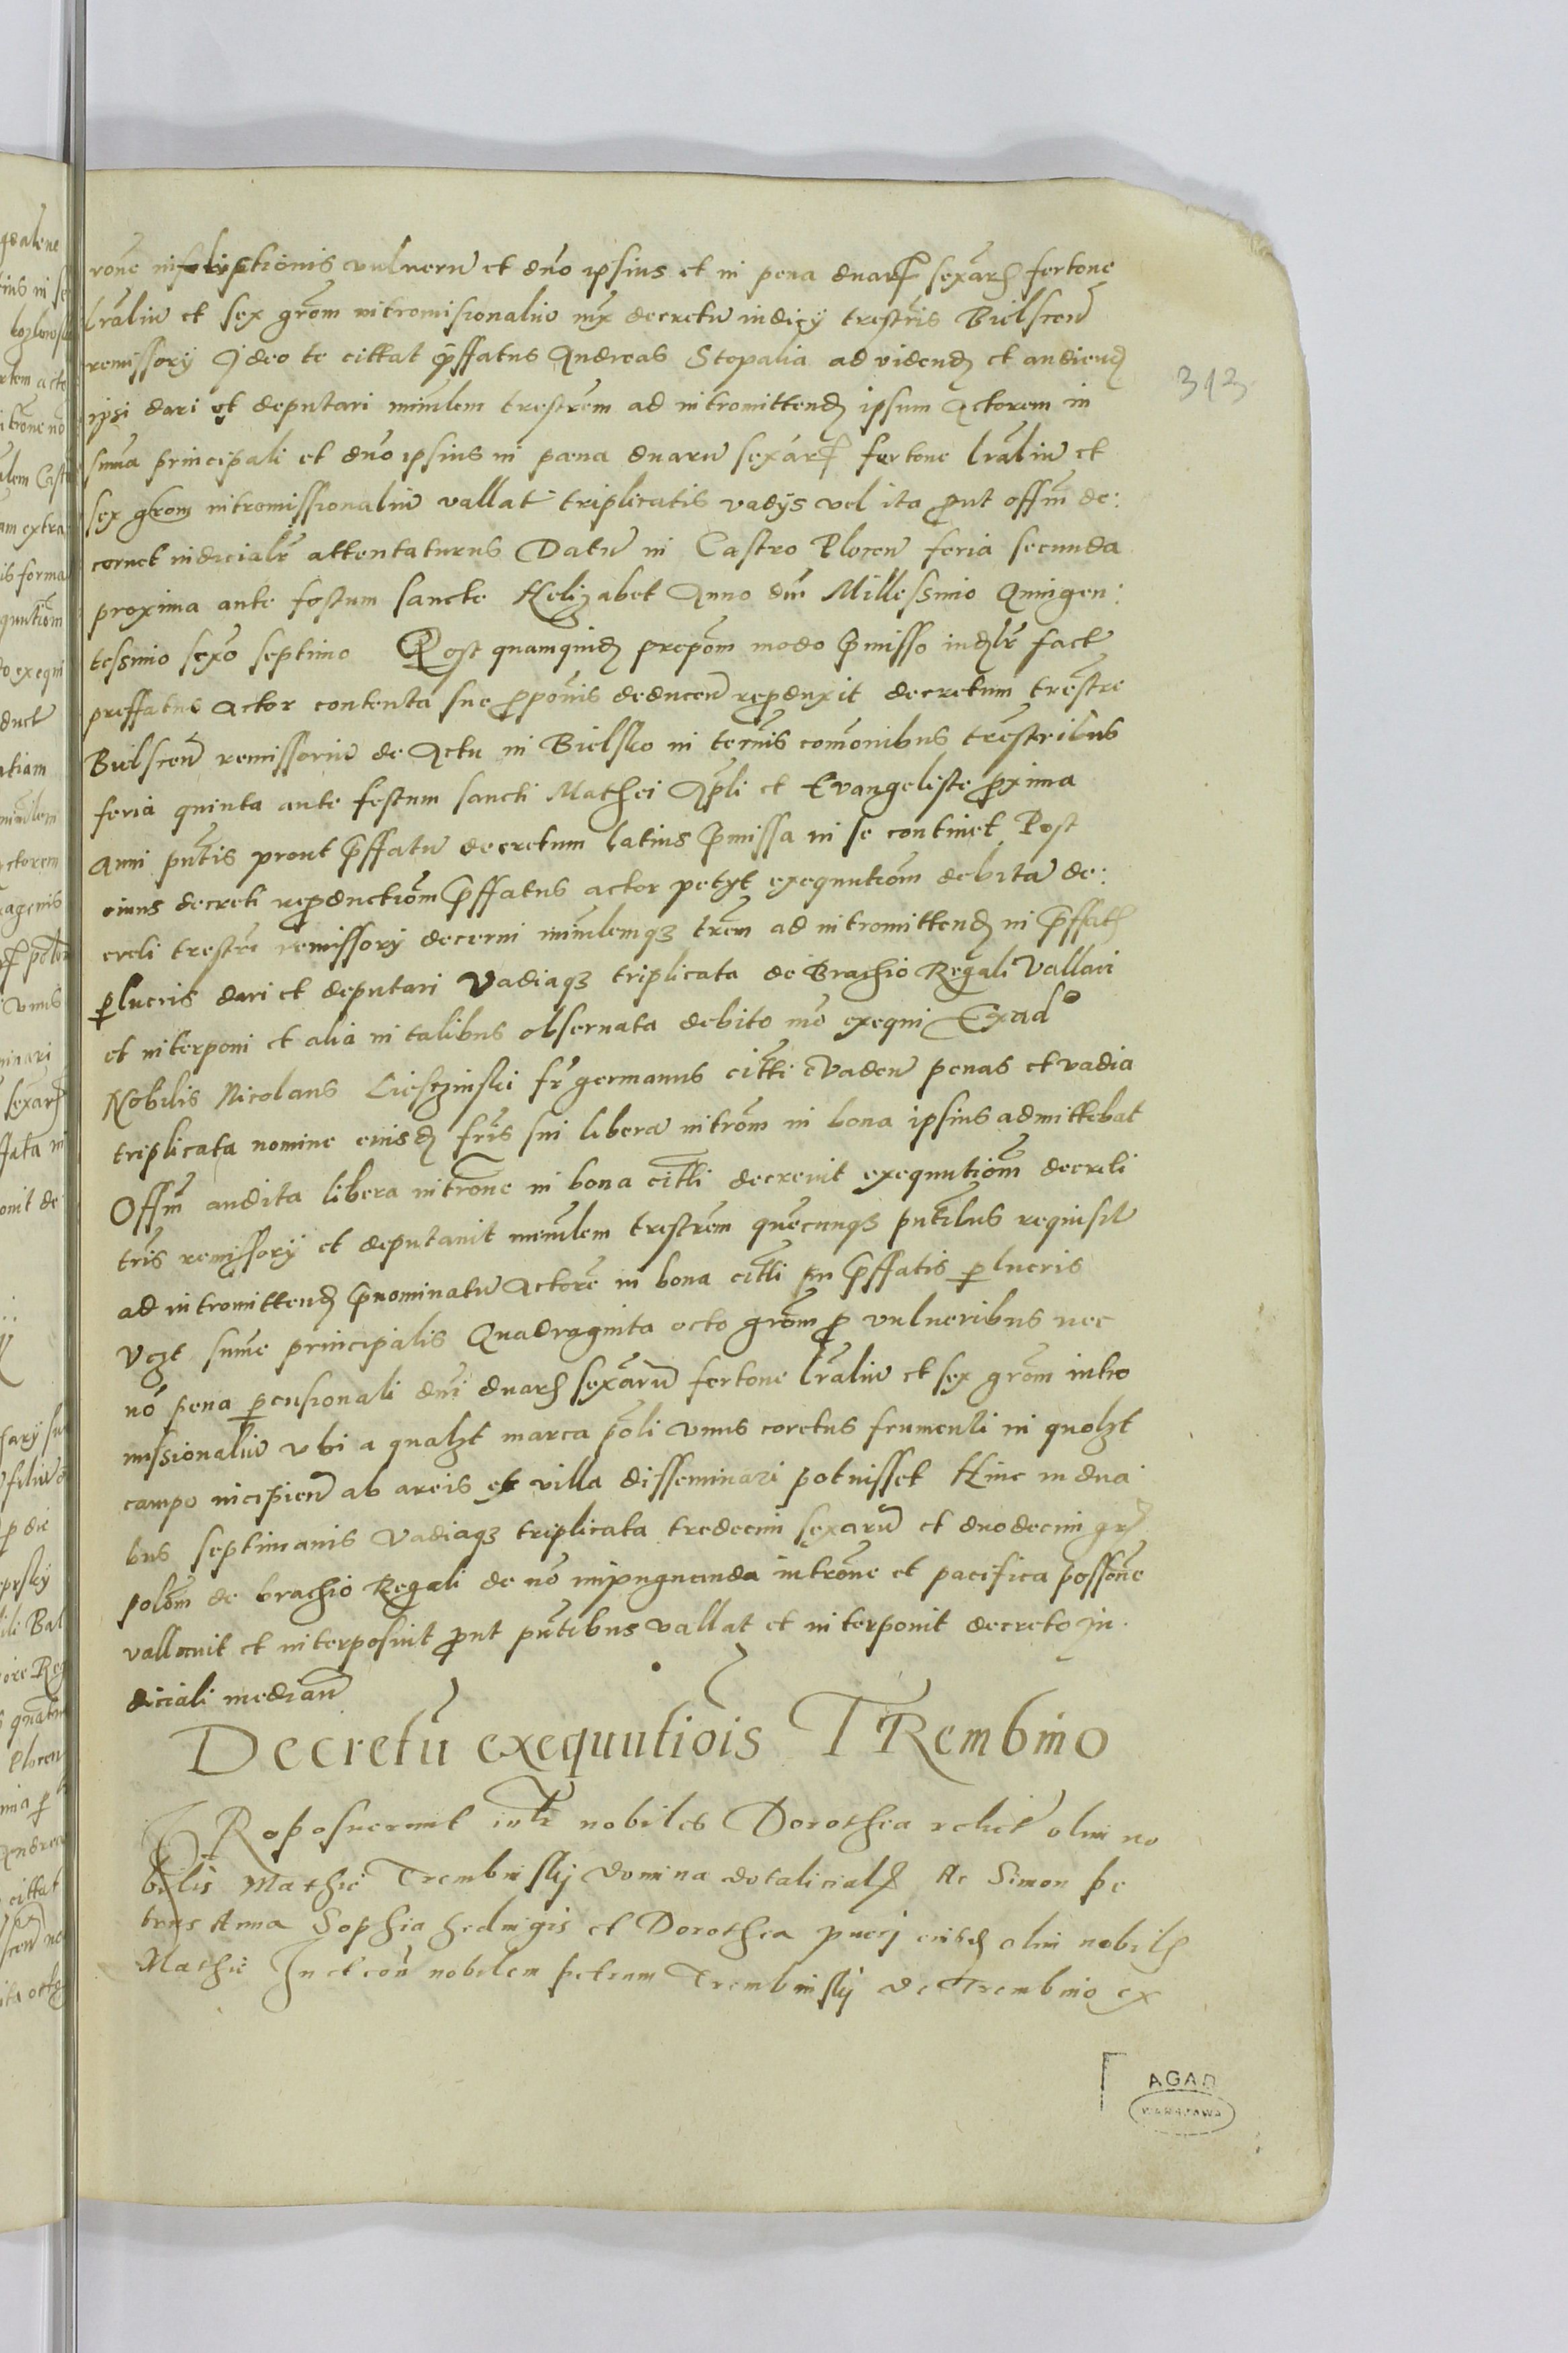 rone inflictionis vulnerū et dno ipsius et in pena duarꝝ sexarꝝ fertone
lraliū et sex grom intromisionaliū iux decretū iudicÿ trestris Bielscen
remissorÿ Ideo te cittat p̄ffatus Andreas Stopalia ad videnꝺ et audienꝺ
ipsi dari et deputari minrlem trestrem ad intromittenꝺ ipsum Actorem in
suma principali et dno ipsius in pœna duarū sexarꝝ fertone lraliū et
sex grom intromissionaliū vallat triplicatis vadÿs vel ita ꝓut offm de:
cernet iudicialr attentaturus Datū in Castro Plocen feria secunda
proxima ante festum sancte Helizabet Anno dni Millesimo Quingen:
tesimo sexo septimo Post quamquidꝫ propom modo p̄misso iudlr fact
preffatus Actor contenta sue ꝓponis deducen reꝓduxit decretum trestre
Bielscen remissoriū de Actu in Bielsko in termis comonibus trestribus
feria quinta ante festum sancti Mathei Apli et Evangeliste ꝓxima
anni pntis prout p̄ffatū decretum latius p̄missa in se continet Post
cuius decreti reꝓductiom p̄ffatus actor petyt exequutiom debita de:
creti trestri remissorÿ decerni minrlemqꝫ trem ad intromittenꝺ in p̄ffatꝭ
ꝑlucris dari et deputari Vadiaqꝫ triplicata de Brachio Regali Vallari
et interponi et alia in talibus observata debito mō exequi Exadº
Nobilis Nicolaus Liesczinski fr germanus citti evaden penas et vadia
triplicata nomine eiusdꝫ fris sui libera introm in bona ipsius admittebat
Offm audita libera introne in bona citti decrevit exequutiom decreti
tris remissorÿ et deputavit minrlem trestrem quecunqꝫ pntibus requisit
ad intromittenꝺ p̄nominatū Actore in bona citti in p̄ffatis ꝑlucris
vczt sume principalis Quadraginta octo grom ꝓ vulneribus nec
nō pena ꝑcusionali dni duarꝝ sexarū fertone lraliū et sex grom intro
missionaliū vbi a qualzt marca poli vnus coretus frumenti in quolzt
campo incipien ab areis et villa disseminari potuisset Hinc in dua
bus septimanis Vadiaqꝫ triplicata tredecim sexarū et duodecim grꝭ
polom de brachio Regali de nō impugnanda introne et pacifica possone
vallavit et interposuit ꝓut pntibus vallat et interponit decreto Iu
diciali median
Decretū exequutiois TRembino
PRoposuerunt iudlr nobiles Dorothea relict olim no
bilis Mathie Trembinskÿ domina dotalicialꝭ Ac Simon pe
trus Anna Sophia hedvigis et Dorothea puerj eiusdꝫ olim nobilꝭ
Mathie In et con nobilem petrum Trembinskÿ de Trembino ex
313
AGAD
WARSZAWA